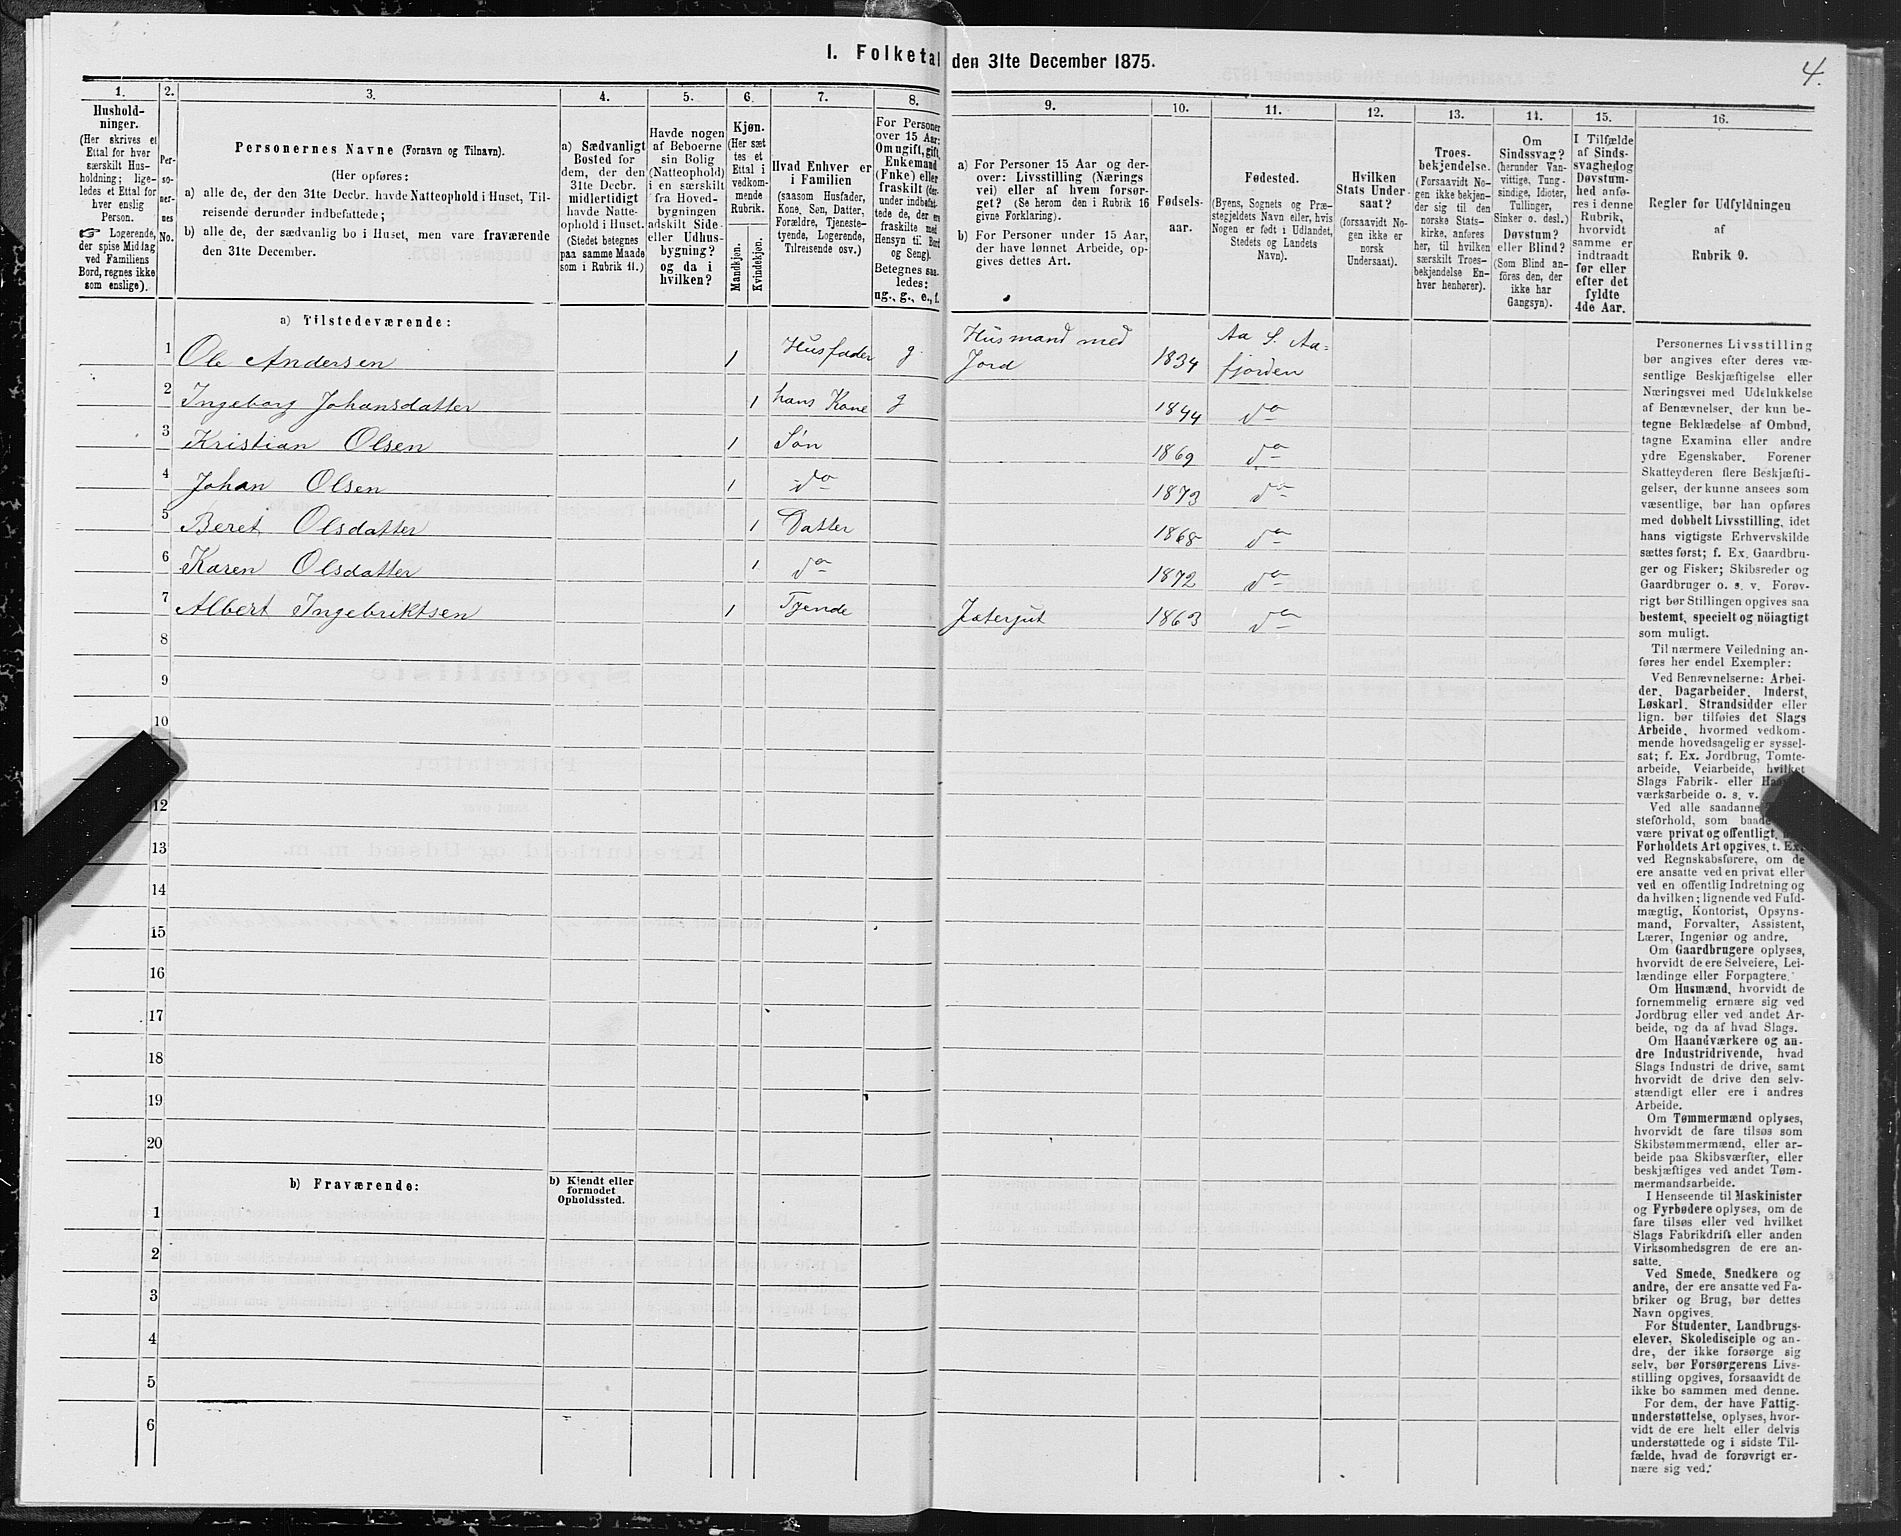 I. Folketal den 31te December 1875.
4.
1.
Hushold-
ninger.
(Her skrives et
Ettal for hver
særskilt Hus-
holdning; lige-
ledes et Ettal for
hver enslig
Person.
☞ Logerende,
der spise Middag
ved Familiens
Bord, regnes ikke
som enslige).
2.
Per-
so-
ner-
nes
No.
3.
Personernes Navne (Fornavn og Tilnavn).
(Her opføres:
a) alle de, der den 31te Decbr. havde Natteophold i Huset, Til-
reisende derunder indbefattede;
b) alle de, der sædvanlig bo i Huset, men vare fraværende
den 31te December.
4.
a) Sædvanligt
Bosted for
dem, der den
31te Decbr.
midlertidigt
havde Natte-
ophold i Huset.
(Stedet betegnes
paa samme Maade
som i Rubrik 11.)
5.
Havde nogen
af Beboerne
sin Bolig
(Natteophold)
i en særskilt
fra Hoved-
bygningen
adskilt Side-
eller Udhus-
bygning?
og da i
hvilken?
6.
Kjøn.
(Her sæt
tes et
Ettal i
vedkom-
mende
Rubrik.
Mandkjøn.
Kvindekjøn.
7.
Hvad Enhver er
i Familien
(saasom Husfader,
Kone, Søn, Datter,
Forældre, Tjeneste-
tyende, Logerende,
Tilreisende osv.)
8.
For Personer
over 15 Aar:
Om ugift, gift,
Enkemand
(Enke) eller
fraskilt (der-
under indbefat-
tede de, der ere
fraskilte med
Hensyn til Bord
og Seng).
Betegnes saa-
ledes:
ug., g., e., f.
9.
a) For Personer 15 Aar og der-
over: Livsstilling (Nærings
vei) eller af hvem forsør-
get? (Se herom den i Rubrik 16
givne Forklaring).
b) For Personer under 15 Aar,
der have lønnet Arbeide, op-
gives dettes Art.
10.
Fødsels-
aar.
11.
Fødested.
(Byens, Sognets og Præ-
stegjeldets Navn eller, hvis
Nogen er født i Udlandet,
Stedets og Landets
Navn).
12.
Hvilken
Stats Under-
saat?
(forsaavidt No-
gen ikke er
norsk
Undersaat).
13.
Troes-
bekjendelse.
(Forsaavidt No-
gen ikke bekjen-
der sig til den
norske Stats-
kirke, anføres
her, til hvilken
særskilt Troes-
bekjendelse En-
hver henhører).
14.
Om
Sindssvag?
(herunder Van-
vittige, Tung-
sindige, Idioter,
Tullinger,
Sinker o. desl.)
Døvstum?
eller Blind?
(Som Blind an-
føres den, der
ikke har
Gangsyn).
15.
I Tilfælde
af Sinds-
svaghed og
Døvstum-
hed anfø-
res i denne
Rubrik,
hvorvidt
samme er
indtraadt
før eller
efter det
fyldte
4de Aar.
16.
Regler for Udfyldningen
af
Rubrik 9.
a) Tilstedeværende:
1 Ole Andersen 1 Husfader g. Husmand med Jord 1834 Aa S. Aa=
fjorden
2 Ingeborg Johansdatter 1 hans Kone g 1844 do
3 Kristian Olsen 1 Søn 1869 do
4 Johan Olsen 1 do 1873 do
5 Beret Olsdatter 1 Datter 1868 do
6 Karen Olsdatter 1 do 1872 do
7 Albert Ingebriktsen 1 Tyende Jætergut 1863 do
8
9
10
12
13
14
15
16
17
18
19
20
b) Fraværende:
b) Kjendt eller
formodet
Opholdssted.
1
2
3
4
5
6
Personernes Livsstilling
bør angives efter deres væ-
sentlige Beskjæftigelse eller
Næringsvei med Udelukkelse
af Benævnelser, der kun be-
tegne Beklædelse af Ombud,
tagne Examina eller andre
ydre Egenskaber. Forener
Skatteyderen flere Beskjæfti-
gelser, der kunne ansees som
væsentlige, bør han opføres
med dobbelt Livsstilling, idet
hans vigtigste Erhvervskilde
sættes først; f. Ex. Gaardbru-
ger og Fisker; Skibsreder og
Gaardbruger o. s. v. Forøv-
rigt bør Stillingen opgives saa
bestemt, specielt og nøiagtigt
som muligt.
Til nærmere Veiledning an-
føres her endel Exempler:
Ved Benævnelserne: Arbei-
der, Dagarbeider, Inderst,
Løskarl, Strandsidder eller
lign. bør tilføies det Slags
Arbeide, hvormed vedkom-
mende hovedsagelig er syssel-
sat; f. Ex. Jordbrug, Tomte-
arbeide, Veiarbeide, hvilket
Slags Fabrik- eller
værksarbeide o. s. v.
Ved alle saadanne
steforhold, som baade
være privat og offentligt,
Forholdets Art opgives, t. Ex.
ved Regnskabsførere, om de
ere ansatte ved en privat eller
ved en offentlig Indretning og
da hvilken; lignende ved Fuld-
mægtig, Kontorist, Opsyns-
mand, Forvalter, Assistent,
Lærer, Ingeniør og andre.
Om Gaardbrugere oplyses,
hvorvidt de ere Selveiere, Lei-
lændinge eller Forpagtere.
Om Husmænd, hvorvidt de
fornemmelig ernære sig ved
Jordbrug eller ved andet Ar-
beide, og da af hvad Slags.
Om Haandværkere og an-
dre Industridrivende, hvad
Slags Industri de drive, samt
hvorvidt de drive den selv-
stændigt eller ere i andres
Arbeide.
Om Tømmermænd oplyses,
hvorvidt de fare tilsøs som
Skibstømmermænd, eller ar-
beide paa Skibsværfter, eller
beskjæftiges ved andet Tøm-
mermandsarbeide.
I Henseende til Maskinister
og Fyrbødere oplyses, om de
fare tilsøs eller ved hvilket
Slags Fabrikdrift eller anden
Virksomhedsgren de ere an-
satte.
Ved Smede, Snedkere og
andre, der ere ansatte ved Fa-
briker og Brug, bør dettes
Navn opgives.
For Studenter, Landbrugs-
elever, Skoledisciple og an-
dre, der ikke forsørge sig
selv, bør Forsørgerens Livs-
stilling opgives, forsaavidt de
ikke bo sammen med denne.
For dem, der have Fattig-
understøttelse, oplyses, hvor-
vidt de ere helt eller delvis
understøttede og i sidste Til-
fælde, hvad de forøvrigt er-
nære sig ved.